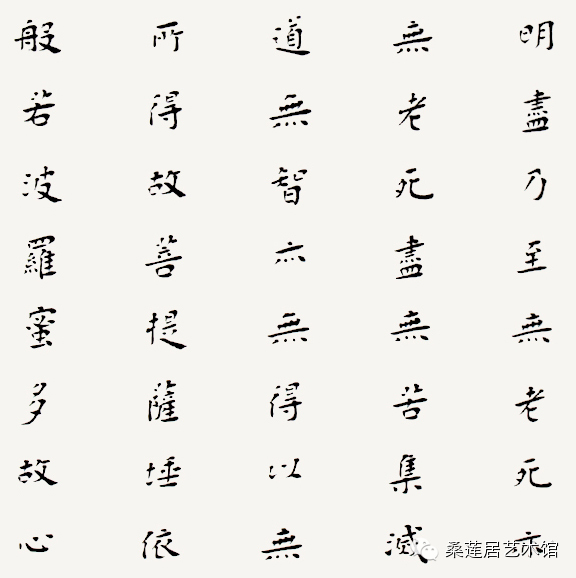 明盡乃至無老死亦
無老死盡無苦集滅
道無智亦無得以無
所得故菩提薩埵依
般若波羅蜜多故心
桑莲居艺术馆